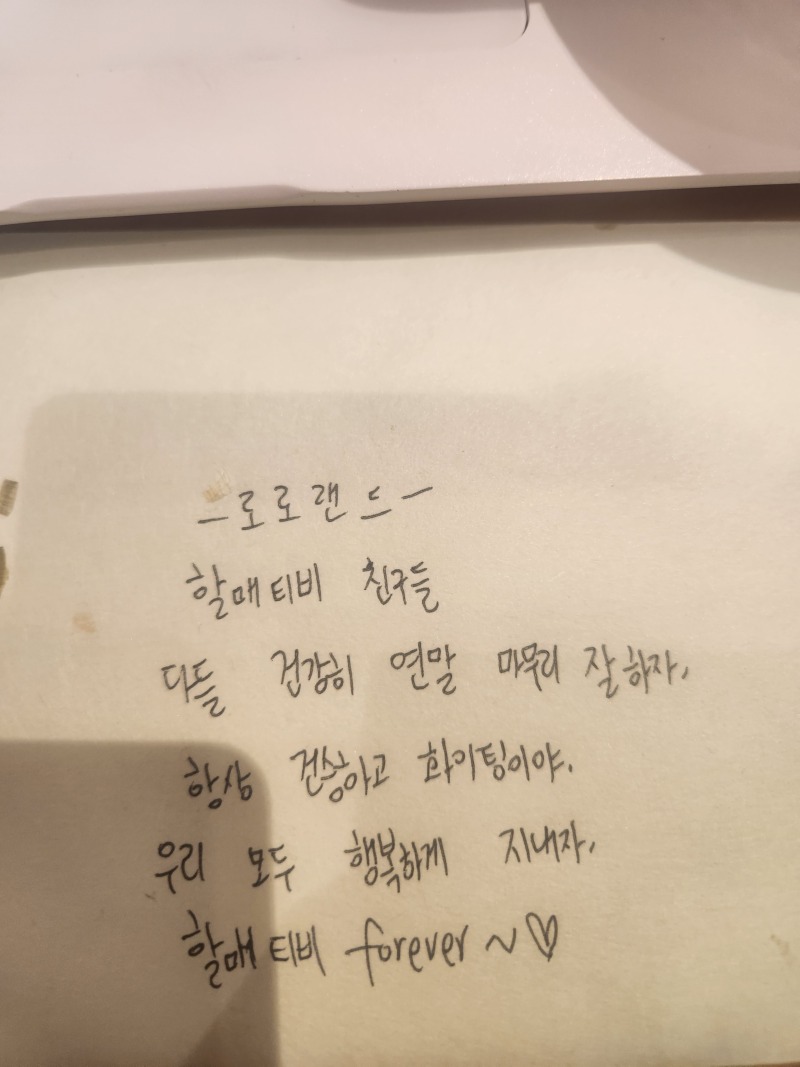 -로로랜드-
할매티비 친구들
다들 건강히 연말 마무리 잘하자.
항상 건승하고 화이팅이야.
우리 모두 행복하게 지내자.
할매티비 forever ~♡